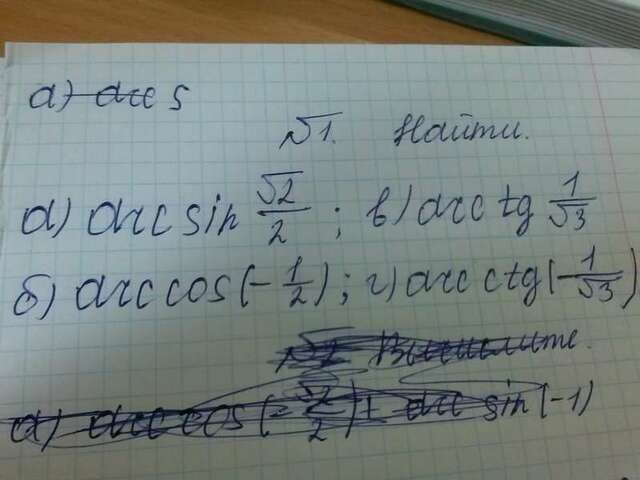 а) arc s
№1. Найти.
а) arc sin √2/2 ; в) arc tg 1/√3
б) arc cos(-1/2) ; г) arc ctg(-1/√3)
№2 Вычислите.
а) arc cos(-√2/2) + arc sin(-1)